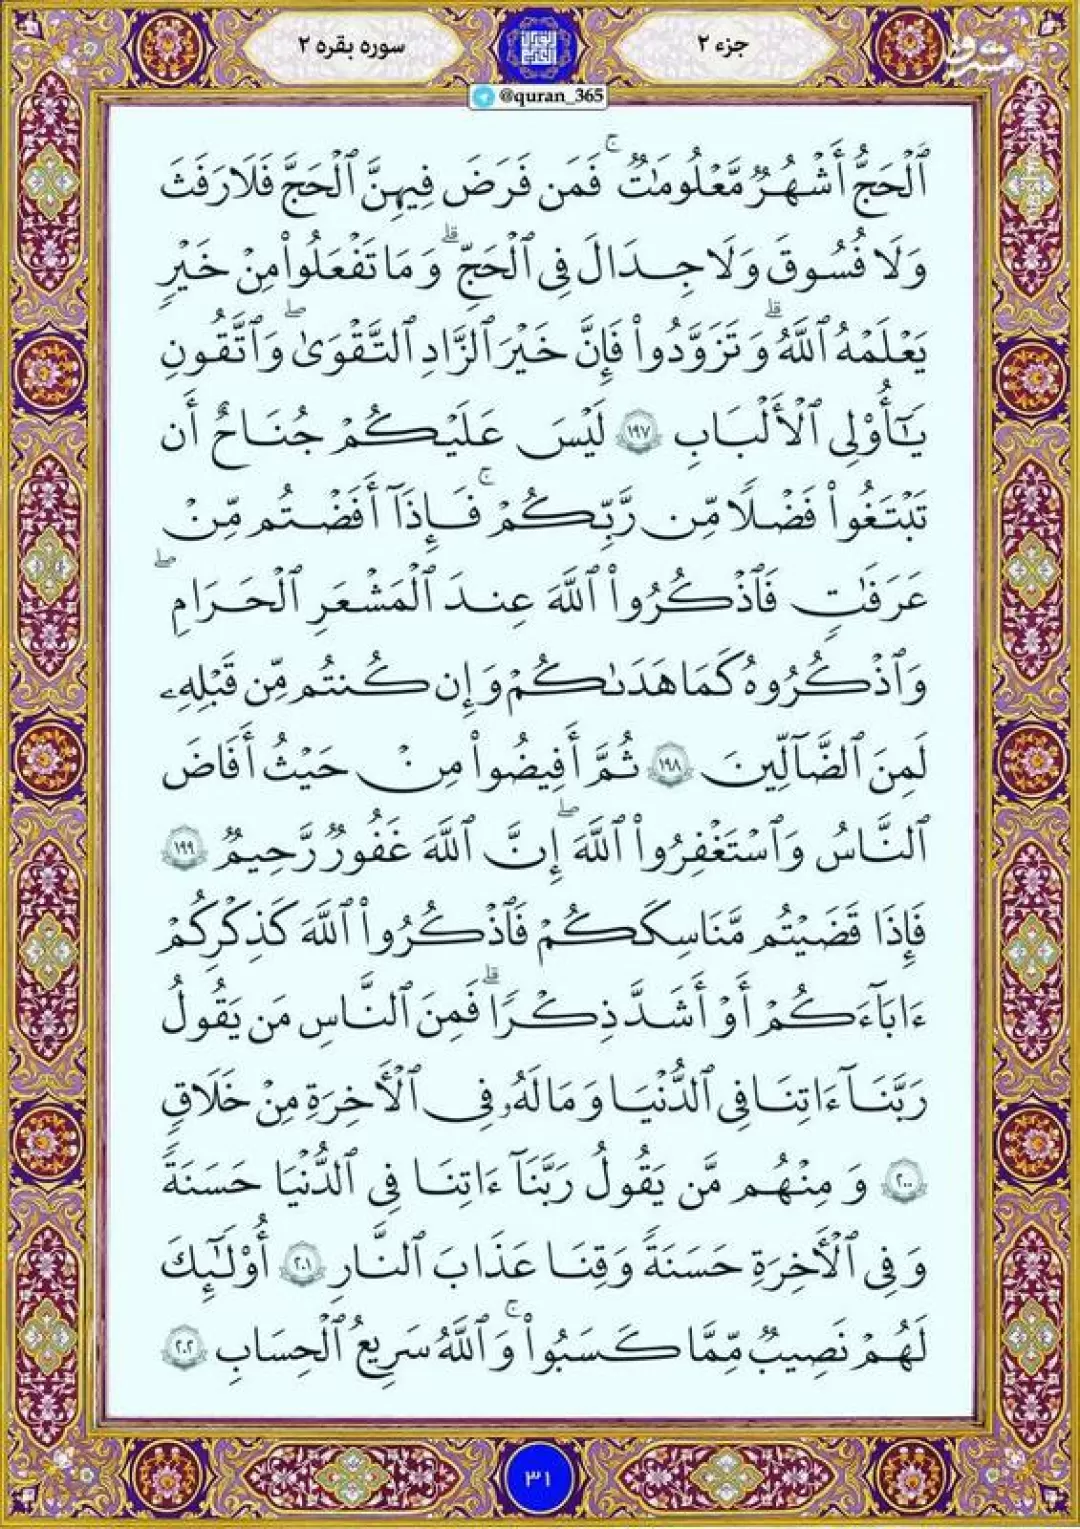 جزء ۲
سوره بقره ۲
@quran_365
ٱلْحَجُّ أَشْهُرٌ مَّعْلُومَٰتٌ ۚ فَمَن فَرَضَ فِيهِنَّ ٱلْحَجَّ فَلَا رَفَثَ
وَلَا فُسُوقَ وَلَا جِدَالَ فِى ٱلْحَجِّ ۗ وَمَا تَفْعَلُوا۟ مِنْ خَيْرٍ
يَعْلَمْهُ ٱللَّهُ ۗ وَتَزَوَّدُوا۟ فَإِنَّ خَيْرَ ٱلزَّادِ ٱلتَّقْوَىٰ ۖ وَٱتَّقُونِ
يَٰٓأُو۟لِى ٱلْأَلْبَابِ ١٩٧ لَيْسَ عَلَيْكُمْ جُنَاحٌ أَن
تَبْتَغُوا۟ فَضْلًا مِّن رَّبِّكُمْ ۚ فَإِذَآ أَفَضْتُم مِّنْ
عَرَفَٰتٍ فَٱذْكُرُوا۟ ٱللَّهَ عِندَ ٱلْمَشْعَرِ ٱلْحَرَامِ ۖ
وَٱذْكُرُوهُ كَمَا هَدَىٰكُمْ وَإِن كُنتُم مِّن قَبْلِهِۦ
لَمِنَ ٱلضَّآلِّينَ ١٩٨ ثُمَّ أَفِيضُوا۟ مِنْ حَيْثُ أَفَاضَ
ٱلنَّاسُ وَٱسْتَغْفِرُوا۟ ٱللَّهَ ۖ إِنَّ ٱللَّهَ غَفُورٌ رَّحِيمٌ ١٩٩
فَإِذَا قَضَيْتُم مَّنَاسِكَكُمْ فَٱذْكُرُوا۟ ٱللَّهَ كَذِكْرِكُمْ
ءَابَآءَكُمْ أَوْ أَشَدَّ ذِكْرًا ۗ فَمِنَ ٱلنَّاسِ مَن يَقُولُ
رَبَّنَآ ءَاتِنَا فِى ٱلدُّنْيَا وَمَا لَهُۥ فِى ٱلْأَخِرَةِ مِنْ خَلَاقٍ
٢٠٠ وَمِنْهُم مَّن يَقُولُ رَبَّنَآ ءَاتِنَا فِى ٱلدُّنْيَا حَسَنَةً
وَفِى ٱلْأَخِرَةِ حَسَنَةً وَقِنَا عَذَابَ ٱلنَّارِ ٢٠١ أُو۟لَٰٓئِكَ
لَهُمْ نَصِيبٌ مِّمَّا كَسَبُوا۟ ۚ وَٱللَّهُ سَرِيعُ ٱلْحِسَابِ ٢٠٢
۳۱